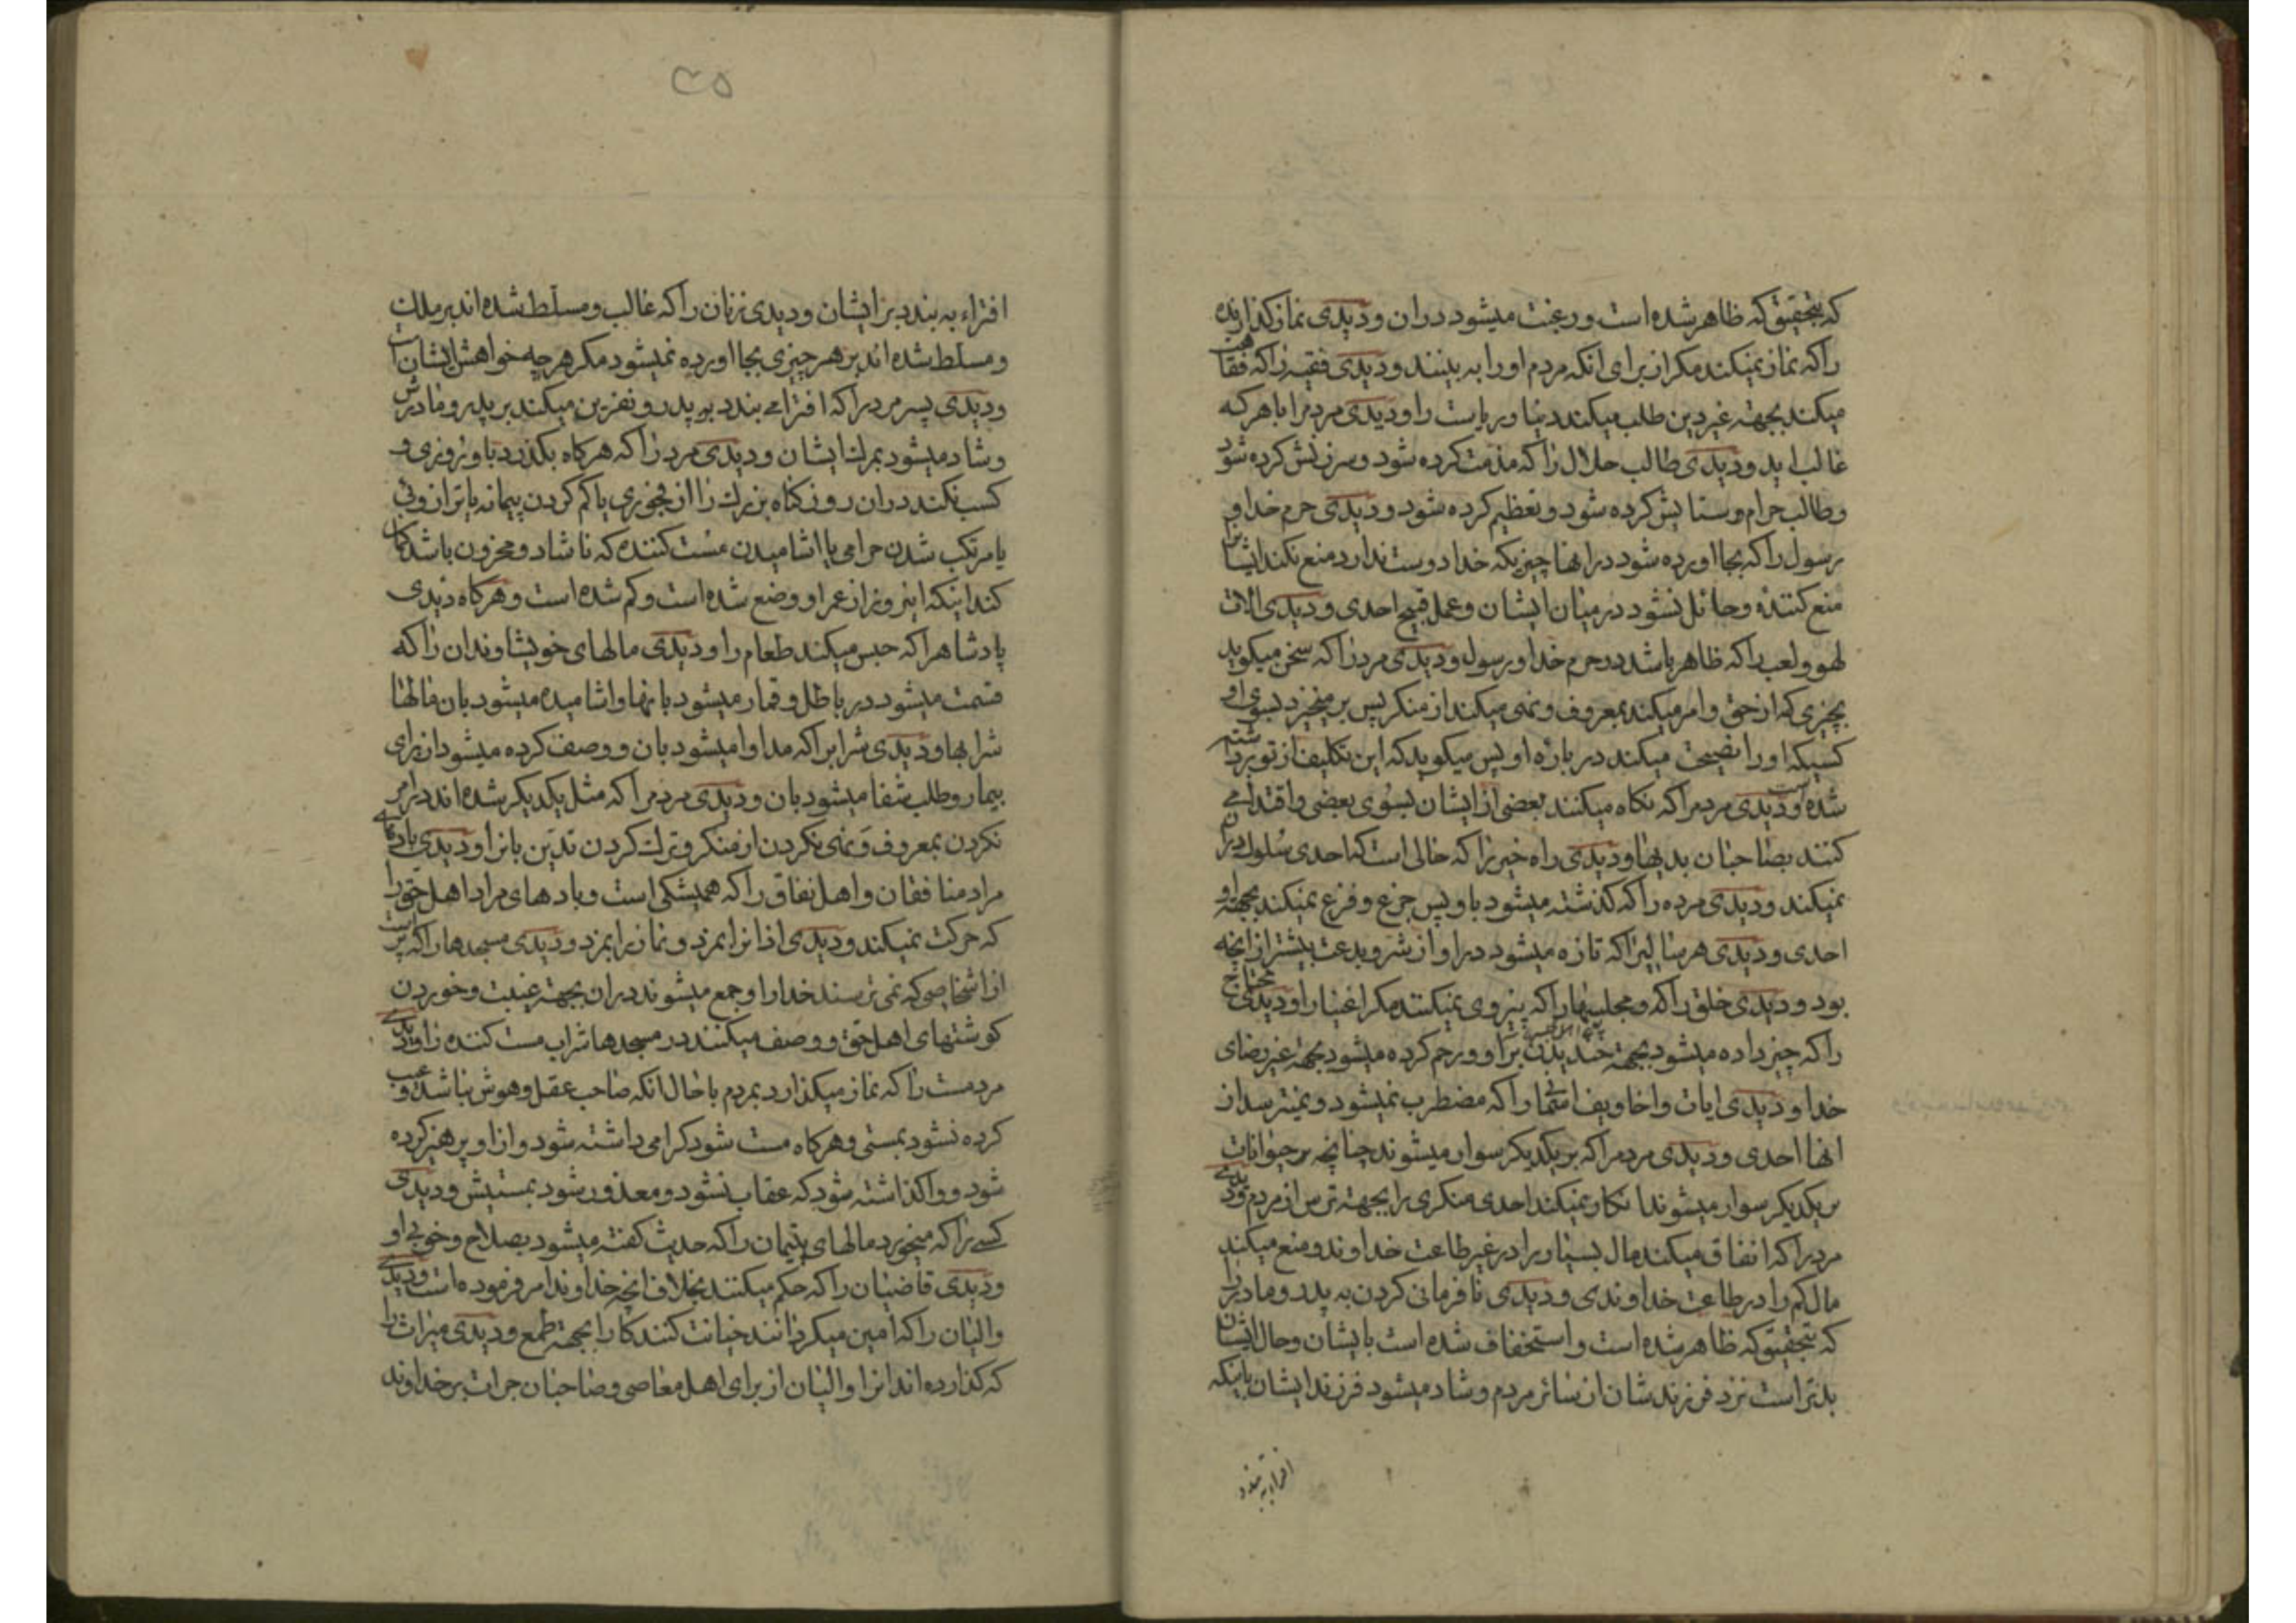 که بتحقیق که ظاهر شده است و رغبت میشود دران و دیدی نماز کذارنده
را که نماز نمیکند مکر از برای انکه مردم او را به بینند و دیدی فقیه را که فقاهت
میکند بجهة غیر دین طلب میکند دنیا و ریاست را و دیدی مردم را با هر که
غالب اید و دیدی طالب حلال را که مذمت کرده شود و سرزنش کرده شود
و طالب حرام و ستایش کرده شود و تعظیم کرده شود و دیدی حرم خدا و
رسول را که بجا اورده شود در انها چیزیکه خدا دوست ندارد منع نکند ایشانرا
منع کننده و حائل نشود در میان ایشان و عمل قبیح احدی و دیدی الات
لهو و لعب را که ظاهر باشد در حرم خدا و رسول و دیدی مرد را که سخن میکوید
بچیزی که از حق و امر میکند بمعروف و نهی میکند از منکر پس بر میخیزد بسوی او
کسیکه او را نصیحت میکند در باره او پس میکوید که این تکلیف از تو برداشته
شده است و دیدی مردم را که نکاه میکنند بعضی از ایشان بسوی بعضی و اقتدا می
کنند بصاحبان بدیها و دیدی راه خیر را که خالی است که احدی سلوک دران
نمیکند و دیدی مرده را که کذشته میشود باو پس جزع و فزع نمیکند بجهة او
احدی و دیدی هر سالیرا که تازه میشود در او از شر و بدعت بیشتر از انچه
بود و دیدی خلق را که و مجلسها را که پیروی نمیکنند مکر اغنیا را و دیدی محتاج
را که چیز داده میشود بجهة خندیدن بر او و رحم کرده میشود بجهة غیر رضای
خدا و دیدی ایات و اخاویف اسمٰا را که مضطرب نمیشود و نمیترسد از
انها احدی و دیدی مردم را که بر یکدیکر سوار میشوند چنانچه بر حیوانات
بر یکدیکر سوار میشوند انکار نمیکند احدی منکری را بجهة ترس از مردم و دیدی
مرد را که انفاق میکند مال بسیار را در غیر طاعت خداوند و منع میکند
مال کم را در طاعت خداوندی و دیدی نافرمانی کردن به پدر و مادر را
که بتحقیق که ظاهر شده است و استخفاف شده است بایشان و حال ایشان
بدتر است نزد فرزندشان از سائر مردم و شاد میشود فرزند ایشان باینکه
افتراء به بندد
۳۵
افتراء به بندد بر ایشان و دیدی زنان را که غالب و مسلط شده اند بر ملک
و مسلط شده اند بر هر چیزی بجا اورده نمیشود مکر هر چه خواهش ایشان است
و دیدی پسر مرد را که افترا می بندد به پدر و نفرین میکند بر پدر و مادرش
و شاد میشود بمرک ایشان و دیدی مرد را که هرکاه بکذرد باو روزی و
کسب نکند دران روز کناه بزرک را از فجوری یا کم کردن پیمانه یا ترازوئی
یا مرتکب شدن حرامی یا اشامیدن مست کننده که ناشاد و محزون باشد کمان
کند اینکه اینروز از عمر او وضع شده است و کم شده است و هرکاه دیدی
پادشاهرا که حبس میکند طعام را و دیدی مالهای خویشاوندان را که
قسمت میشود در باطل و قمار میشود بانها و اشامیده میشود بان مالها
شرابها و دیدی شرابرا که مداوا میشود بان و وصف کرده میشود از برای
بیمار و طلب شفا میشود بان و دیدی مردم را که مثل یکدیکر شده اند در امر
نکردن بمعروف و نهی نکردن از منکر و ترک کردن تدین بانرا و دیدی بادهای
مراد منافقان و اهل نفاق را که همیشکی است و بادهای مراد اهل حق را
که حرکت نمیکند و دیدی اذانرا بمزد و نماز را بمزد و دیدی مسجدها را که پر است
از اشخاصی که نمی ترسند خدا را و جمع میشوند دران بجهة غیبت و خوردن
کوشتهای اهل حق و وصف میکنند در مسجدها شراب مست کننده را و دیدی
مرد مست را که نماز میکذارد بمردم با حال انکه صاحب عقل و هوش نباشد و عیب
کرده نشود بمستی و هرکاه مست شود کرامی داشته شود و از او پرهیز کرده
شود و واکذاشته شود که عقاب نشود و معذور شود بمستیش و دیدی
کسی را که میخورد مالهای یتیمان را که حدیث کفته میشود بصلاح و خوبی او
و دیدی قاضیان را که حکم میکنند بخلاف انچه خداوند امر فرموده است و دیدی
والیان را که امین میکردانند خیانت کنندکان را بجهة طمع و دیدی میراث را
که کذارده اند انرا والیان از برای اهل معاصی و صاحبان جرات بر خداوند